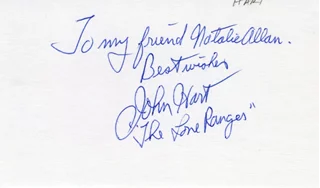 To my friend Natalie Allan.
Best wishes
John Hart
"The Lone Ranger"